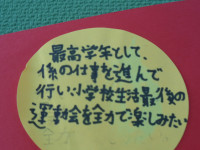 最高学年として、
係の仕事を進んで
行い小学校生活最後の
運動会を全力で楽しみたい